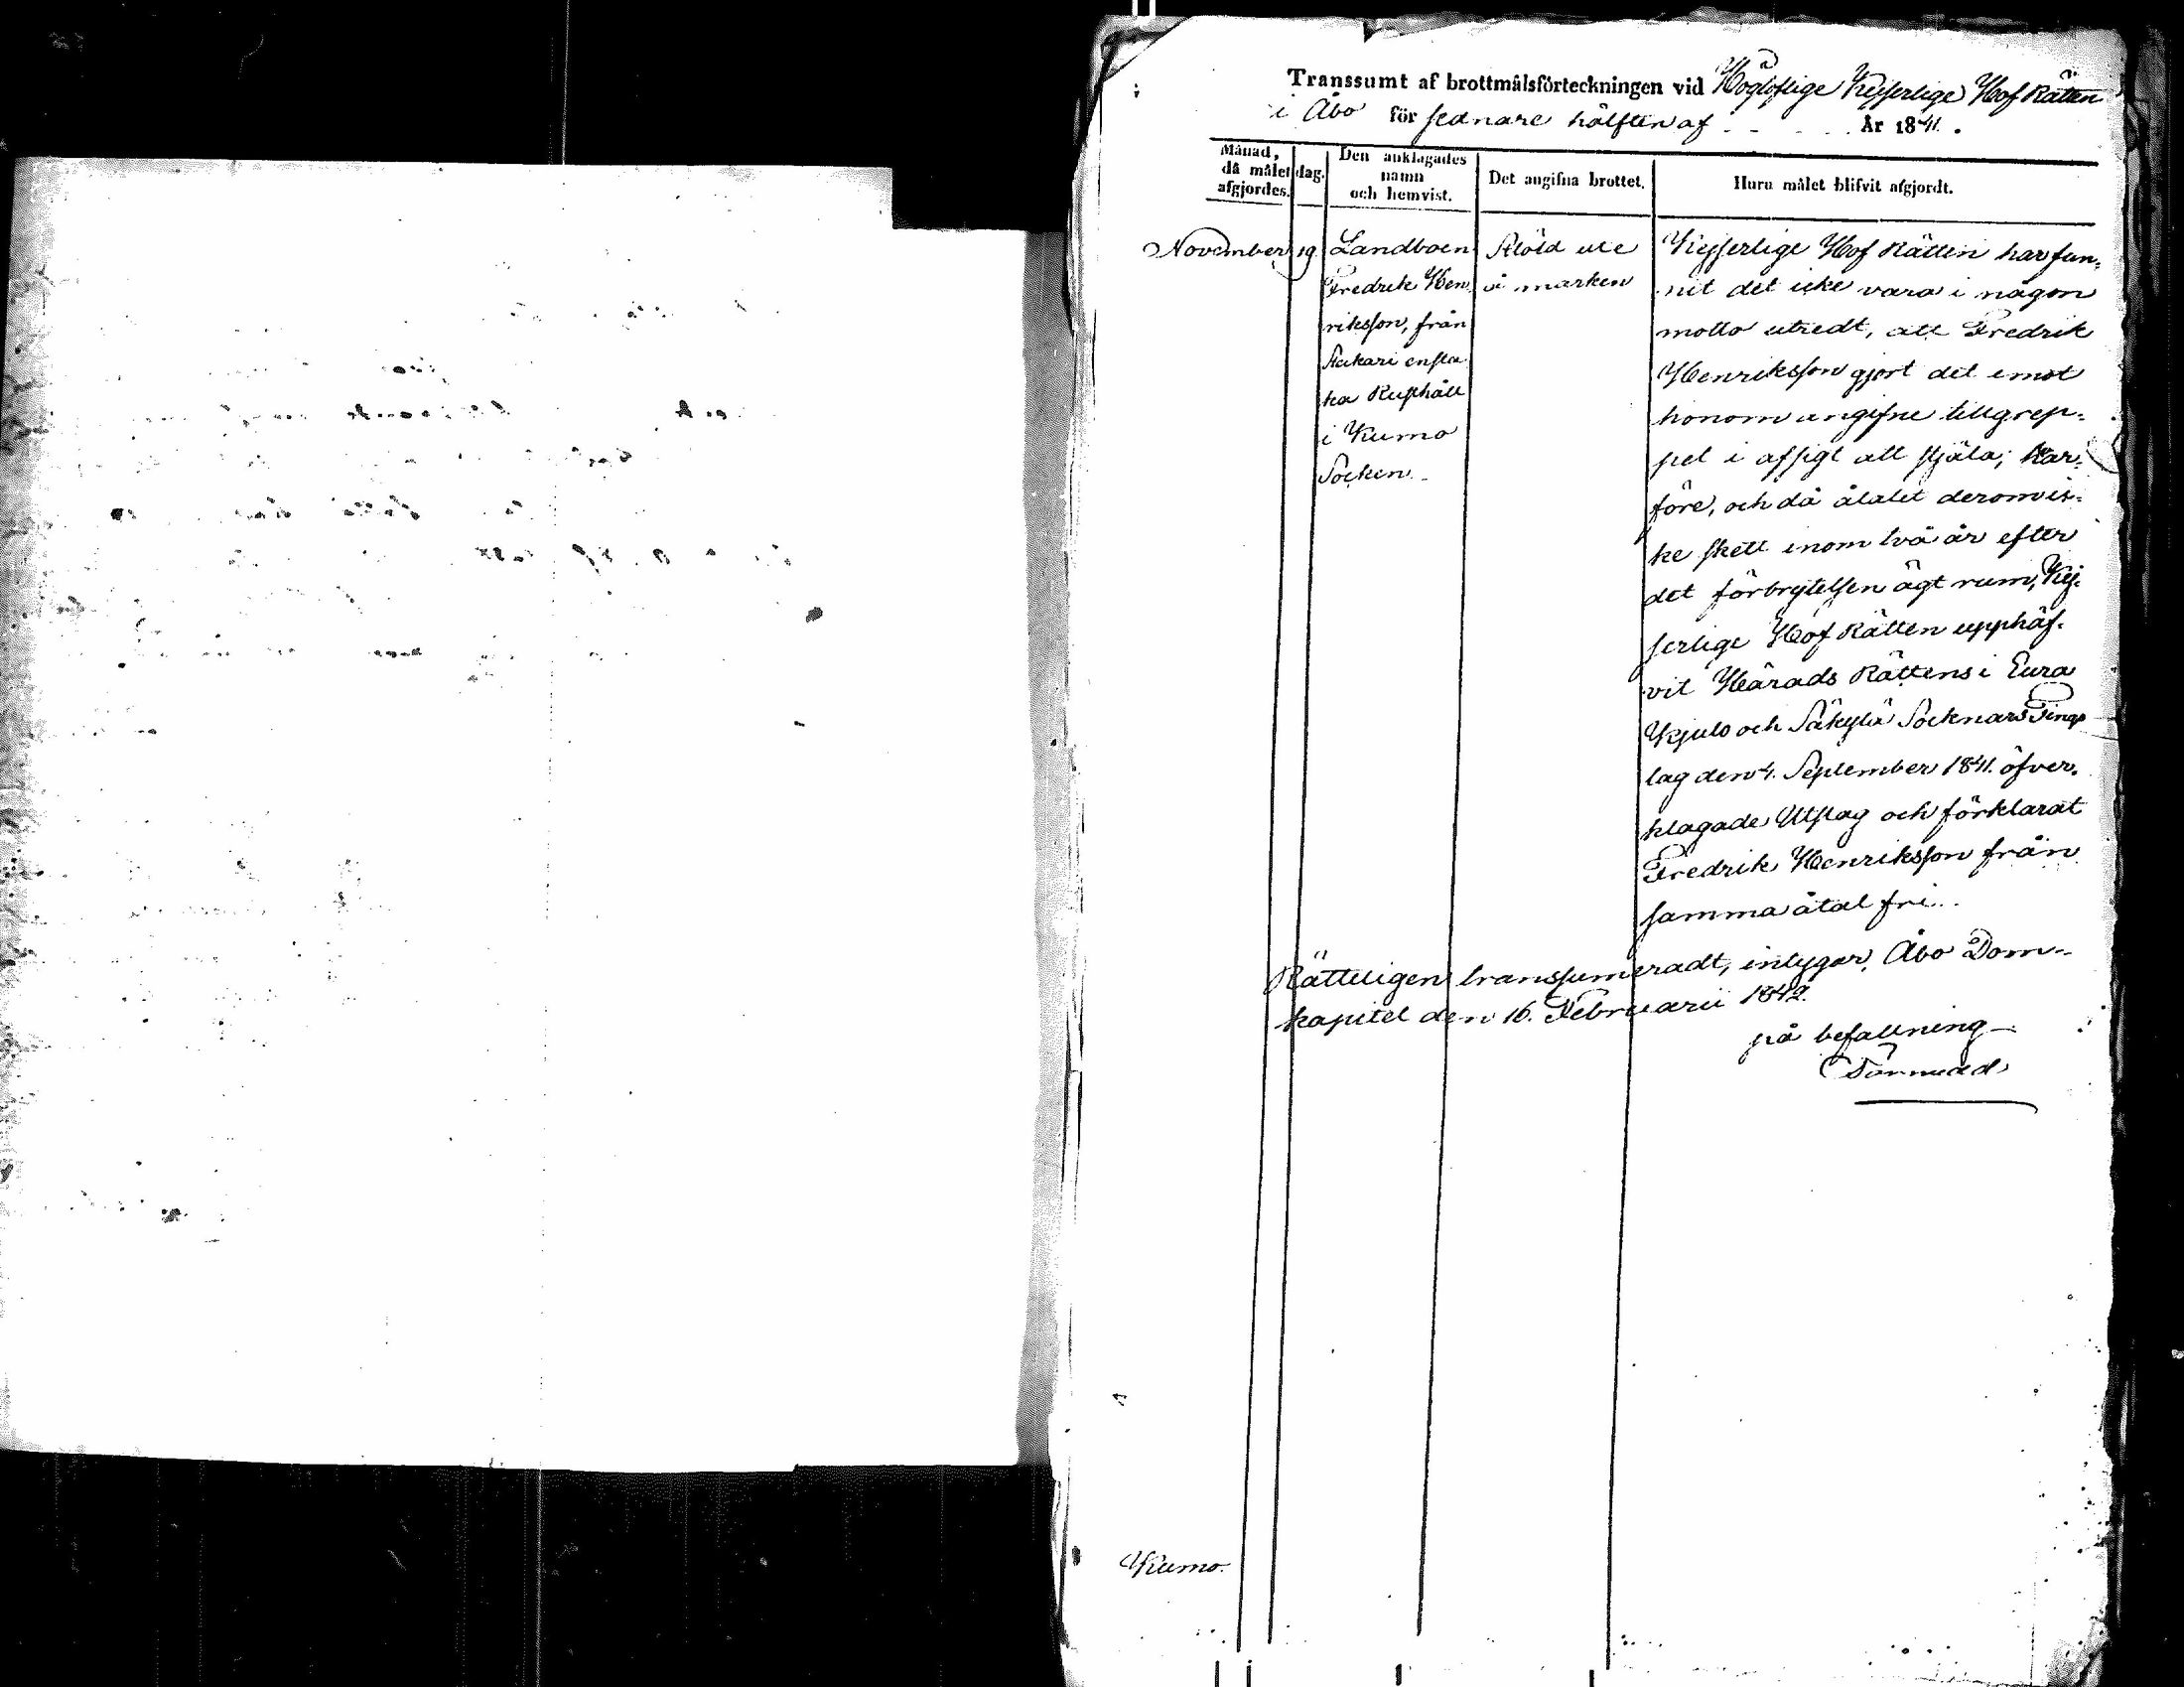 Transsumt af brottmålsförteckningen vid Höglofliga Kejserliga Hof Rätten
i Åbo för sednare hälften af År 1841.
Månad, då målet afgjordes. dag. Den anklagades namn och hemvist. Det angifna brottet. Huru målet blifvit afgjordt.
November 19.
Landboen
Fredrik Hen
riksson, från
ensta
ka Rusthåll
i Kumo
Socken.
Stöld ute
i marken
Kejserlige Hof Rätten har fun,
nit det icke vara i någon
motto utredt, att Fredrik
Henriksson gjort det emot
honom angifne tillgrep,
pet i afsigt att stjäla;
före, och då åtalet derom ic,
ke skett inom två år efter
det förbrytelsen ägt rum, Kej,
serlige Hof Rätten upphäf,
vit Härads Rättens i Eura
Kjulo och Säkylä Socknars Tings
lag den 4. September 1841. öfver,
klagade Utslag och förklarat
Fredrik Henriksson från
samma åtal fri.
Rätteligen transsumeradt, intygar, Åbo Dom-
kapitel den 16. Februarii 1842.
på befallning
Törnudd
Kumo.